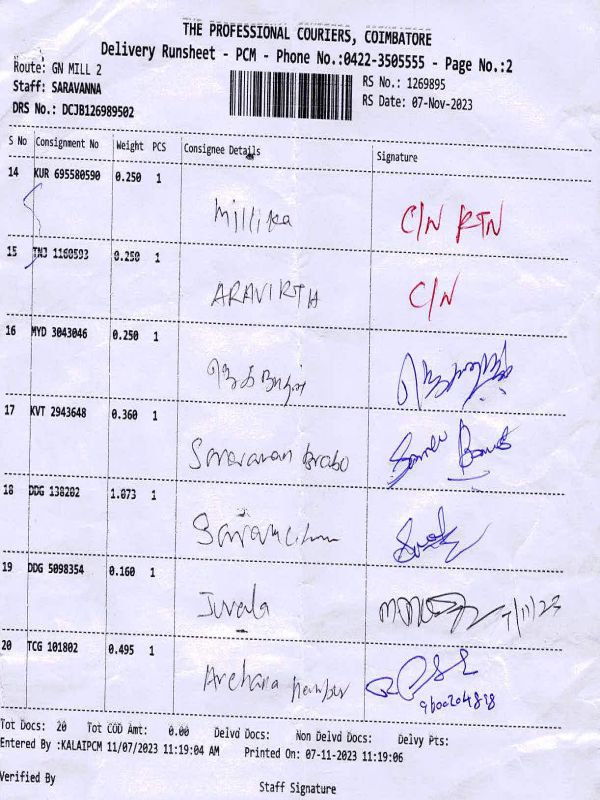 THE PROFESSIONAL COURIERS, COIMBATORE
Delivery Runsheet - PCM - Phone No.:0422-3505555 - Page No.:2
Route: GN MILL 2
RS No.: 1269895
Staff: SARAVANNA
RS Date: 07-Nov-2023
DRS No.: DCJB126989502
S No Consignment No Weight PCS Consignee Details Signature
14 KUR 695580590 0.250 1
Millika C/N RTN
15 TNJ 1160593 0.250 1
ARAVIRTH C/N
16 MYD 3043046 0.250 1
17 KVT 2943648 0.360 1
Saravanan
18 DDG 138202 1.073 1
19 DDG 5098354 0.160 1
Juvala 7/11/23
20 TCG 101802 0.495 1
Archana
9600204818
Tot Docs: 20 Tot COD Amt: 0.00 Delvd Docs: Non Delvd Docs: Delvy Pts:
Entered By :KALAIPCM 11/07/2023 11:19:04 AM Printed On: 07-11-2023 11:19:06
Verified By
Staff Signature